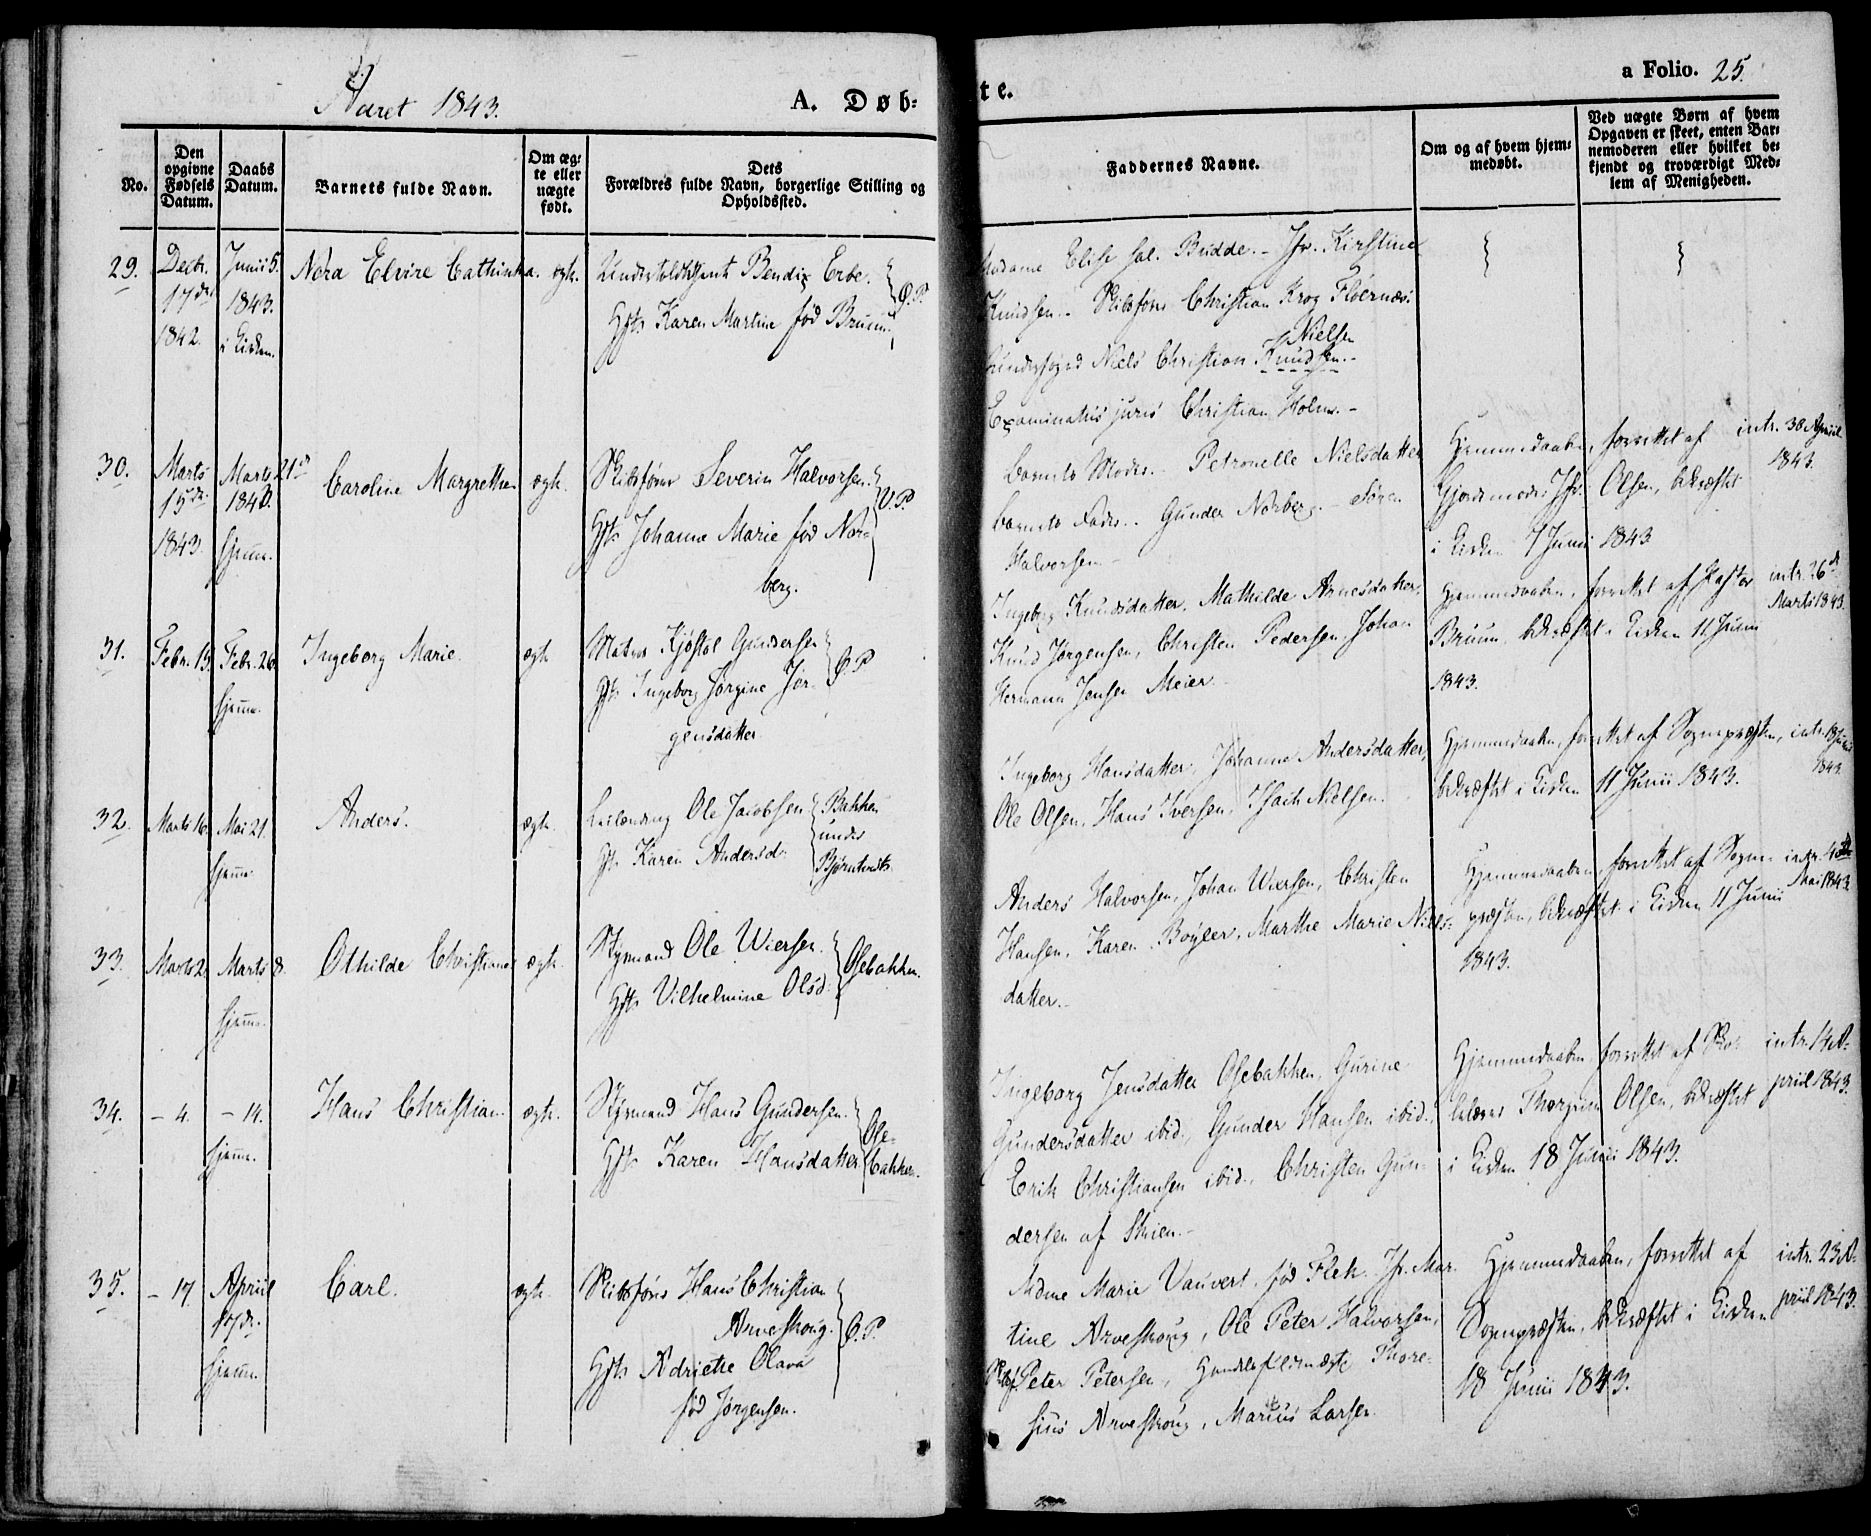 Aaret 1843.
A. Døb-
te.
a Folio. 25.
No.
Den opgivne Fødsels Datum.
Daabs Datum.
Barnets fulde Navn.
Om ægte eller uægte født.
Dets Forældres fulde Navn, borgerlige Stilling og Opholdssted.
Faddernes Navne.
Om og af hvem hjemmedøbt.
Ved uægte Børn af hvem Opgaven er skeet, enten Barnemoderen eller hvilket bekjendt og troværdigt Medlem af Menigheden.
29.
Decbr. 17de 1842.
Junii 5. 1843. i Kirken.
Nora Elvire Cathinka.
ægte.
Bendix Erbe.
Gift: Karen Martine fød Bruun.
Ø.P.
Madame Elise sal. Budde. - Jfr. Kirstine
Knudsen. - Skibsfører Christian Krog Floernæs.
Nielsen
Niels Christian Knudsen. -
Examinatus juris Christian Holm. -
30.
Marts 15de 1843.
Marts 21de 1843. hjem.
Caroline Margrethe
ægte.
Skibsfører Severin Halvorsen.
Gift: Johanne Marie fød Nor-
berg.
V.P.
Barnets Moder. - Petronelle Nielsdatter
Barnets Fader. - Gunder Norberg. - Søren
Halvorsen. -
Hjemmedaaben, forrettet af
Gjordemoder Jfr. Olsen, bekræftet
i Kirken 7 Junii 1843
intr. 30 Apriil
1843.
31.
Febr. 15.
Febr. 26. hjem.
Ingeborg Marie.
ægte
Matros Kjøstol Gundersen
Gift: Ingeborg Jørgine Jør-
gensdatter
Ø.P.
Ingeborg Knudsdatter, Mathilde Arnesdatter,
Knud Jørgensen, Christen Pedersen, Johan
Hermann Jensen Meier. -
Hjemmedaaben, forrettet af Pastor
Bruun, bekræftet i Kirken 11 Junii
1843.
intr. 26de
Marts 1843.
32.
Marts 16.
Mai 21. hjem.
Anders.
ægte.
Leilænding Ole Jacobsen
Gift: Karen Andersd.
Bakken
under
Bjørntvedt.
Ingeborg Hansdatter, Johanne Andersdatter,
Ole Olsen, Hans Iversen, Isach Nielsen.
Hjemmedaaben, forrettet af Sognepræsten,
bekræftet i Kirken 11 Junii 1843.
intr. 18 Junii
1843.
33.
Marts 2.
Marts 8. hjem.
Othilde Christiane
ægte.
Styrmand Ole Wiersen.
Gift: Vilhelmine Olsd.
Osebakken.
Anders Halvorsen, Johan Wiersen, Christen
Hansen, Karen Boyler, Marthe Marie Niels-
datter. -
Hjemmedaaben, forrettet af Sogne-
præsten, bekræftet i Kirken 11 Junii
1843.
intr.
Mai 1843.
34.
- 4.
- 14. hjem.
Hans Christian
ægte.
Styrmand Hans Gundersen.
Gift: Karen Hansdatter
Ose-
bakken.
Ingeborg Jensdatter Osebakken, Gurine
Gundersdatter ibid., Gunder Hansen ibid.,
Erik Christiansen ibid., Christen Gun-
dersen af Skien. -
Hjemmedaaben, forrettet af Sko-
lelærer Thorgrim Olsen, bekræftet
i Kirken 18 Junii 1843.
intr. 14 A-
priil 1843.
35.
- 17.
Apriil 17de. hjem.
Carl.
ægte.
Skibsfører Hans Christian
Arveskoug.
Gift: Adriette Olava
fød Jørgensen.
Ø.P.
Mdme Marie Vauvert fød Flek. Jfr. Mar-
tine Arveskoug, Ole Peter Halvorsen,
Peter Petersen, Thore-
sius Arveskoug, Marius Larsen
Hjemmedaaben, forrettet af
Sognepræsten, bekræftet i Kirken
18 Junii 1843.
intr. 23 A-
priil 1843.